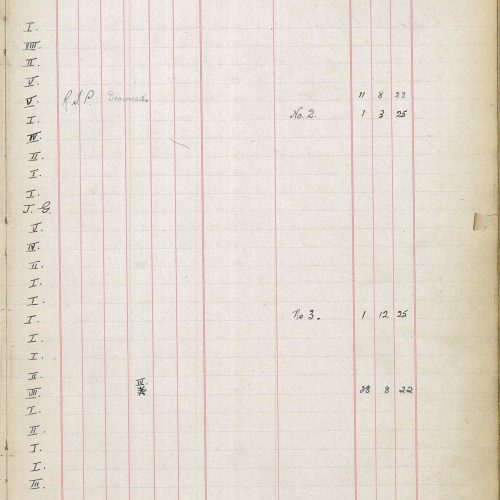 I.
VIII.
II.
V.
V. R.I.P. Drowned. 11 8 23
I. No. 2. 1 3 25
IV.
II.
I.
I.
J. G.
V.
IV.
II.
I.
I.
I. No 3. 1 12 25
I.
I.
II.
VII. IV. 28 8 22
I.
II.
I.
I.
III.